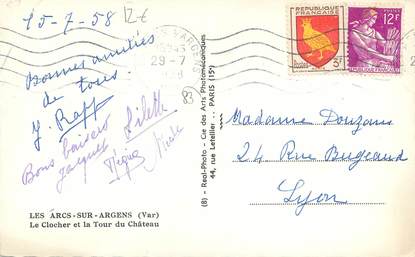 15-7-58
12€
29-7
83
Bonnes amitiés
de tous
J. Rapp
Bons baisers
Jacques
LES ARCS-SUR-ARGENS (Var)
Le Clocher et la Tour du Château
(8) - Real-Photo - Cie des Arts Photomécaniques
44, rue Letellier - PARIS (15e)
RÉPUBLIQUE
FRANÇAISE
3F
12F
Madame Douzans
24 Rue Bugeaud
Lyon